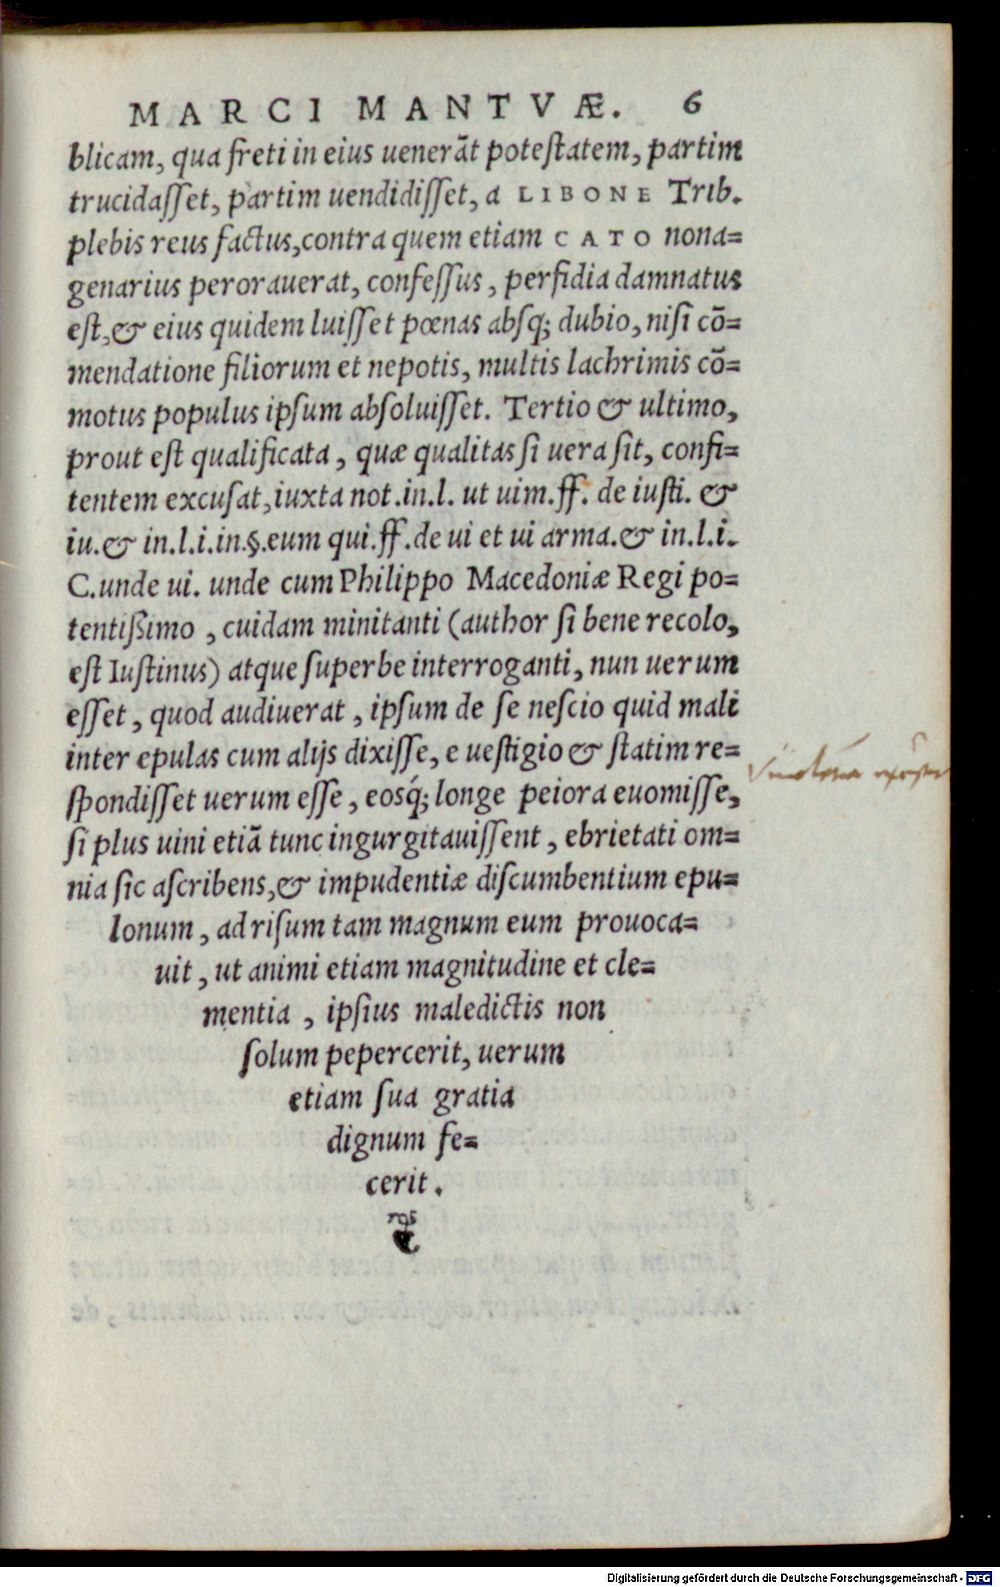 MARCI MANTVÆ. 6
blicam, qua freti in eius uenerãt poteſtatem, partim
trucidaſſet, partim uendidiſſet, a LIBONE Trib.
plebis reus factus, contra quem etiam CATO nona=
genarius perorauerat, confeſſus, perfidia damnatus
eſt, & eius quidem luiſſet pœnas abſq; dubio, niſi cõ=
mendatione filiorum et nepotis, multis lachrimis cõ=
motus populus ipſum abſoluiſſet. Tertio & ultimo,
prout eſt qualificata, quæ qualitas ſi uera ſit, confi=
tentem excuſat, iuxta not. in. l. ut uim. ff. de iuſti. &
iu. & in. l. i. in. §. eum qui. ff. de ui et ui arma. & in. l. i.
C. unde ui. unde cum Philippo Macedoniæ Regi po=
tentißimo, cuidam minitanti (author ſi bene recolo,
eſt Iuſtinus) atque ſuperbe interroganti, nun uerum
eſſet, quod audiuerat, ipſum de ſe neſcio quid mali
inter epulas cum alijs dixiſſe, e ueſtigio & ſtatim re=
ſpondiſſet uerum eſſe, eosq́; longe peiora euomiſſe,
ſi plus uini etiã tunc ingurgitauiſſent, ebrietati om=
nia ſic aſcribens, & impudentiæ diſcumbentium epu=
lonum, ad riſum tam magnum eum prouoca=
uit, ut animi etiam magnitudine et cle=
mentia, ipſius maledictis non
ſolum pepercerit, uerum
etiam ſua gratia
dignum fe=
cerit.
Digitalisierung gefördert durch die Deutsche Forschungsgemeinschaft - DFG